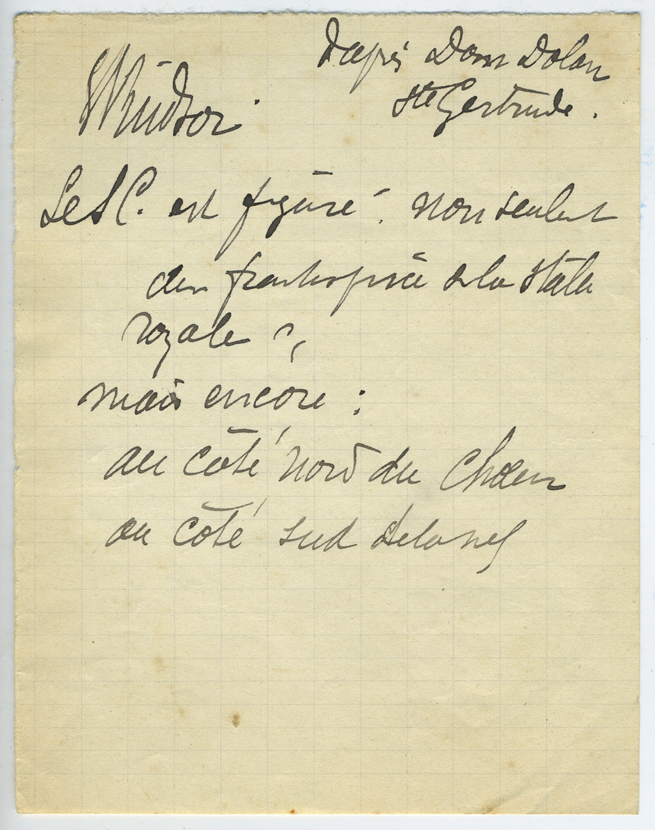 Windsor.
d'après Dom Dolan
Ste Gertrude.
Le S C. est figuré. non seulent
au frontispice de la stalle
royale
mais encore :
au côté nord du Chœur
au côté sud de la nef